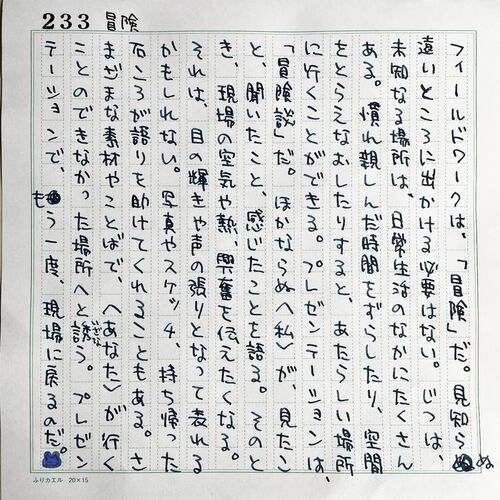 233 冒険
フィールドワークは、「冒険」だ。見知らぬ
遠いところに出かける必要はない。じつは、
未知なる場所は、日常生活のなかにたくさん
ある。慣れ親しんだ時間をずらしたり、空間
をとらえなおしたりすると、あたらしい場所
に行くことができる。プレゼンテーションは、
「冒険談」だ。ほかならぬ〈私〉が、見たこ
と、聞いたこと、感じたことを語る。そのと
き、現場の空気や熱、興奮を伝えたくなる。
それは、目の輝きや声の張りとなって表れる
かもしれない。写真やスケッチ、持ち帰った
石ころが語りを助けてくれることもある。さ
まざまな素材やことばで、〈あなた〉が行く
ことのできなかった場所へと誘う。プレゼン
いざな
テーションで、もう一度、現場に戻るのだ。
ふりカエル 20×15